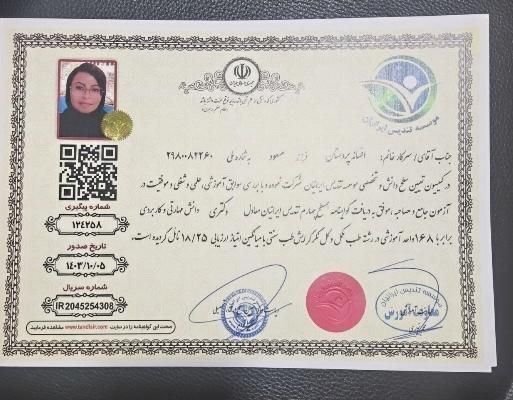 موسسه تندیس ایرانیان
جناب آقای / سرکار خانم: افسانه پردستان فرزند: مسعود به شماره ملی ۲۹۸۰۰۸۲۲۶۰
در کمیسیون تعیین سطح دانش و تخصصی موسسه تندیس ایرانیان شرکت نموده و با بررسی سوابق آموزشی، علمی و شغلی و موفقیت در
آزمون جامع و مصاحبه، موفق به دریافت گواهینامه سطح چهارم تندیس ایرانیان معادل دکتری دانش مهارتی و کاربردی
برابر با ۱۶۸ واحد آموزشی در رشته طب مکمل گرایش طب سنتی با میانگین امتیاز ارزیابی ۱۸/۲۵ نائل گردیده است.
شماره پیگیری
۱۲۴۲۵۸
تاریخ صدور
۱۴۰۳/۱۰/۰۵
شماره سریال
IR2045254308
صحت این گواهینامه را در سایت www.tandisir.com مشاهده فرمایید.
موسسه تندیس ایرانیان
معاونت آموزش